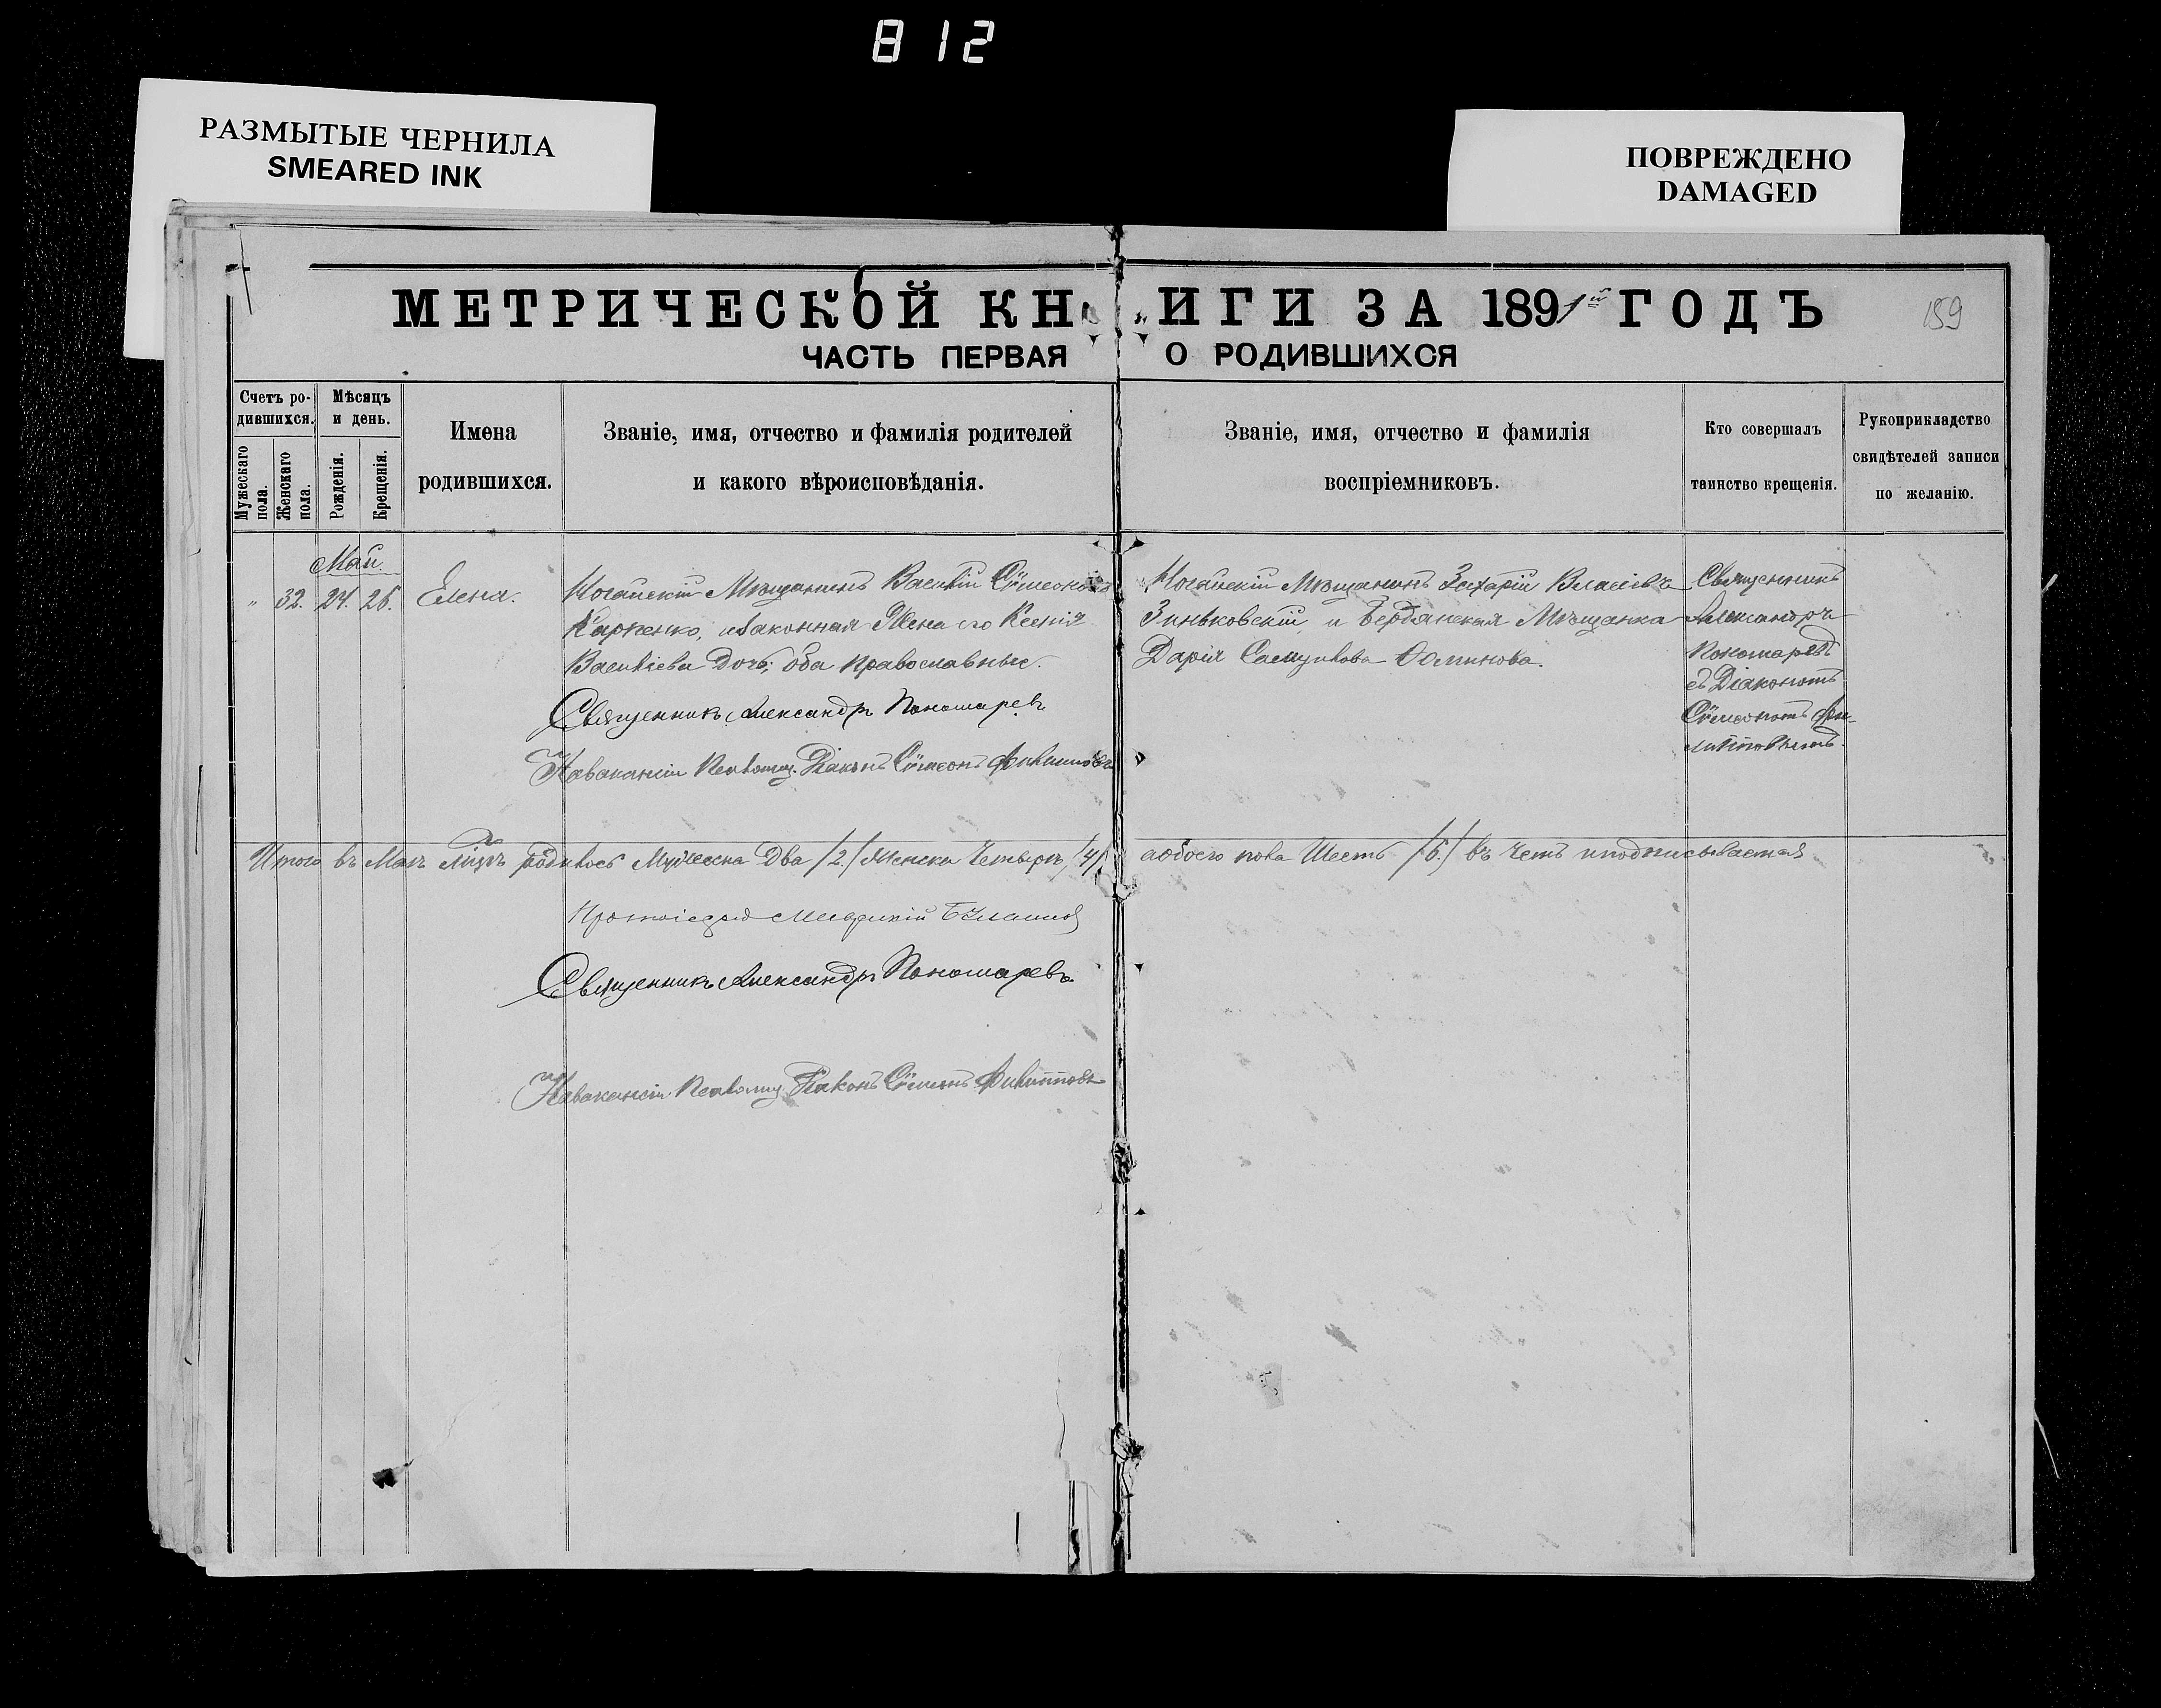 812
РАЗМЫТЫЕ ЧЕРНИЛА
SMEARED INK
ПОВРЕЖДЕНО
DAMAGED
МЕТРИЧЕСКОЙ КНИГИ ЗА 1891й ГОДЪ
159
ЧАСТЬ ПЕРВАЯ О РОДИВШИХСЯ
Счетъ ро-
дившихся.
Мужескаго
пола.
Женскаго
пола.
Мѣсяцъ
и день.
Рожденія.
Крещенія.
Имена
родившихся.
Званіе, имя, отчество и фамилія родителей
и какого вѣроисповѣданія.
Званіе, имя, отчество и фамилія
воспріемниковъ.
Кто совершалъ
таинство крещенія.
Рукоприкладство
свидѣтелей записи
по желанію.
Май.
" 32. 24. 26. Елена.
Ногайскій Мѣщанинъ Василій Сѷмеоновъ
Карпенко, и законная Жена его Ксенія
Васильева Дочь; оба православные.
Священникъ Александръ Пономаревъ
На вакансіи Псаломщ. Діаконъ Сѷмеонъ Филипповъ
Ногайскій Мѣщанинъ Захарій Власіевъ
Зиньковскій, и Бердянская Мѣщанка
Дарія
Священникъ
Александръ
Пономаревъ
съ Діакономъ
Сѷмеономъ Фи-
липповымъ.
Итого въ Маѣ мѣсяцѣ родилось Мужеска Два /2./ Женска Четыре /4/ а обоего пола Шесть /6./ въ чемъ и подписываемся
Протоіерей
Священникъ Александръ Пономаревъ
На вакансіи Псаломщ. Діаконъ Сѷмеонъ Филипповъ